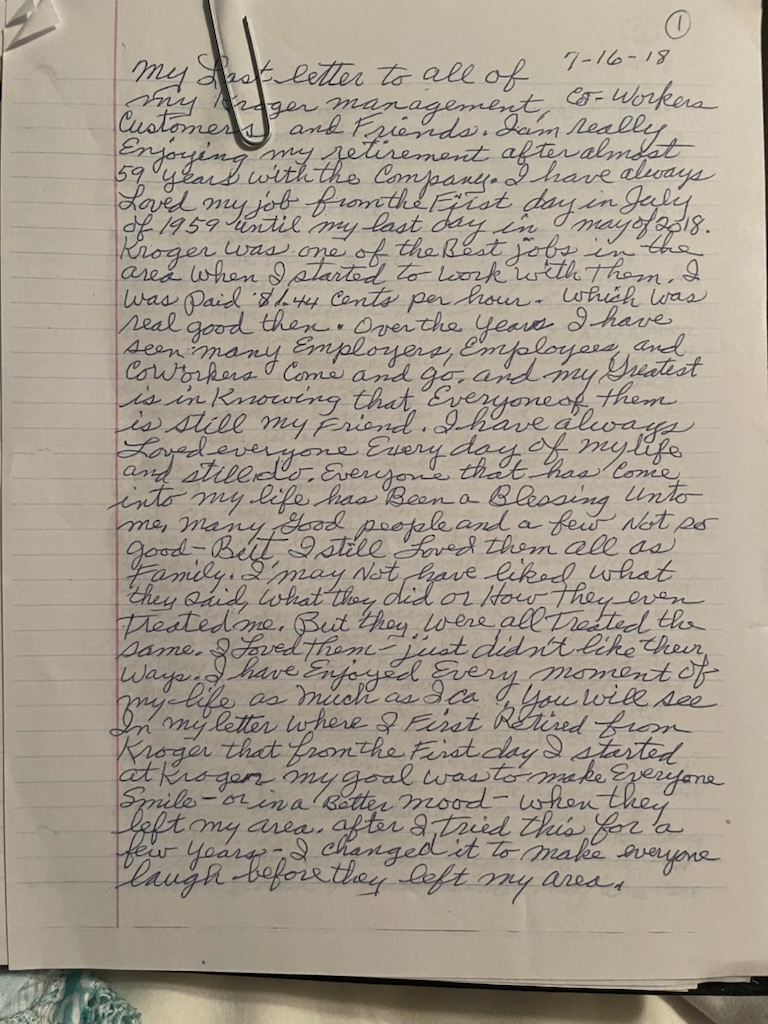 1
7-16-18
My Last letter to all of
my Kroger management, Co-Workers
Customers and Friends. I am really
Enjoying my retirement after almost
59 years with the Company. I have always
Loved my job from the First day in July
of 1959 until my last day in may of 2018.
Kroger was one of the Best jobs in the
area when I started to work with them. I
was Paid $1.44 Cents per hour. Which was
real good then. Over the years I have
seen many Employers, Employees, and
CoWorkers Come and go. and my Greatest
is in Knowing that Everyone of them
is still my Friend. I have always
Loved everyone Every day of my life
and still do. Everyone that has Come
into my life has Been a Blessing Unto
me, many Good people and a few Not so
good - But I still Loved them all as
Family. I may Not have liked what
they said, what they did or How they even
treated me. But they were all treated the
same. I Loved them - just didn't like their
ways. I have Enjoyed Every moment of
my life as much as I ca . You will see
In my letter where I First Retired from
Kroger that from the First day I started
at Kroger my goal was to make Everyone
Smile - or in a Better mood - when they
left my area. after I tried this for a
few years - I changed it to make everyone
laugh before they left my area.